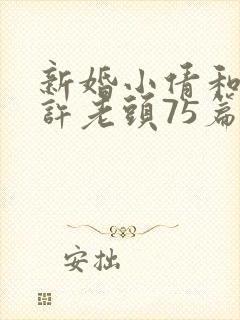 新婚小倩和
許老頭75篇
安拙